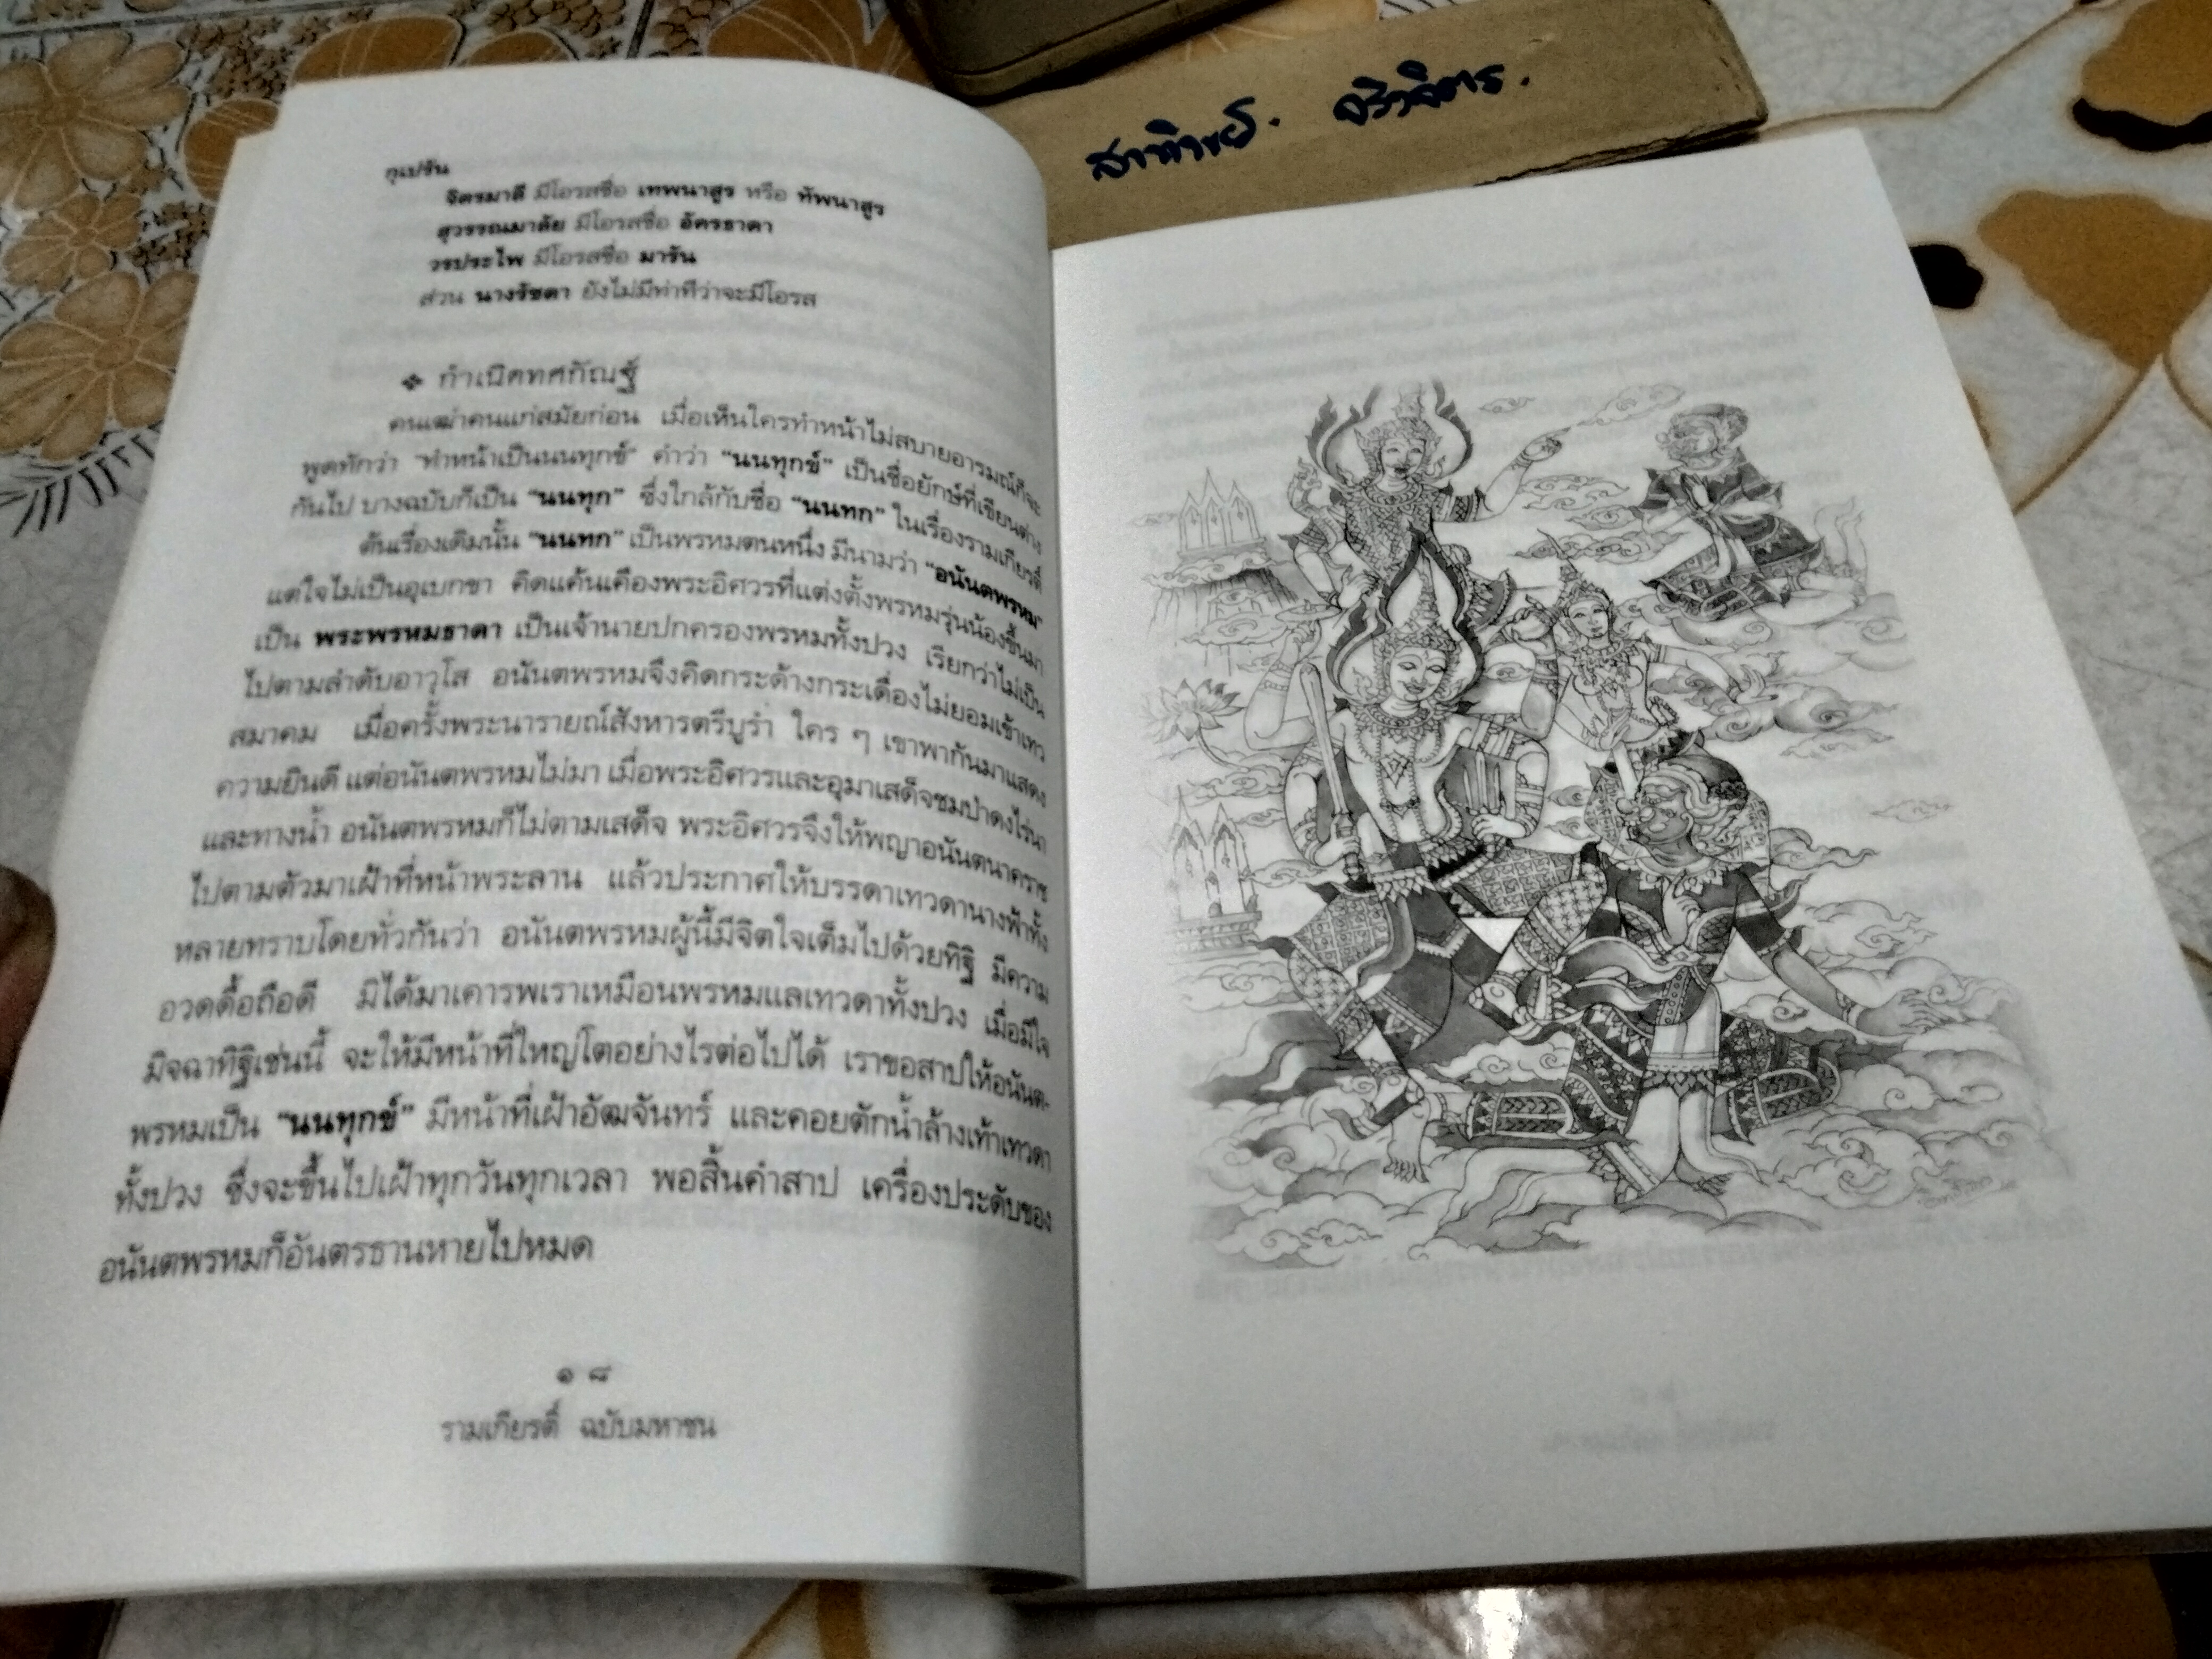 กุเปรัน
จิตรมาลี มีโอรสชื่อ เทพนาสูร หรือ ทัพนาสูร
สุวรรณมาลัย มีโอรสชื่อ อัศธาดา
วรประไพ มีโอรสชื่อ มารัน
ส่วน นางรัชดา ยังไม่มีท่าทีว่าจะมีโอรส
❖ กำเนิดทศกัณฐ์
คนเฒ่าคนแก่สมัยก่อน เมื่อเห็นใครทำหน้าไม่สบายอารมณ์ก็จะ
พูดทักว่า “ทำหน้าเป็นนนทุกข์” คำว่า “นนทุกข์” เป็นชื่อยักษ์ที่เขียนต่าง
กันไป บางฉบับก็เป็น “นนทุก” ซึ่งใกล้กับชื่อ “นนทก” ในเรื่องรามเกียรติ์
ต้นเรื่องเดิมนั้น “นนทก” เป็นพรหมตนหนึ่ง มีนามว่า “อนันตพรหม”
แต่ใจไม่เป็นอุเบกขา คิดแค้นเคืองพระอิศวรที่แต่งตั้งพรหมรุ่นน้องขึ้นมา
เป็น พระพรหมธาดา เป็นเจ้านายปกครองพรหมทั้งปวง เรียกว่าไม่เป็น
ไปตามลำดับอาวุโส อนันตพรหมจึงคิดกระด้างกระเดื่องไม่ยอมเข้าเทว
สมาคม เมื่อครั้งพระนารายณ์สังหารตรีบูรำ ใคร ๆ เขาพากันมาแสดง
ความยินดี แต่อนันตพรหมไม่มา เมื่อพระอิศวรและอุมาเสด็จชมป่าดงไร่นา
และทางน้ำ อนันตพรหมก็ไม่ตามเสด็จ พระอิศวรจึงให้พญาอนันตนาคราช
ไปตามตัวมาเฝ้าที่หน้าพระลาน แล้วประกาศให้บรรดาเทวดานางฟ้าทั้ง
หลายทราบโดยทั่วกันว่า อนันตพรหมผู้นี้มีจิตใจเต็มไปด้วยทิฐิ มีความ
อวดดื้อถือดี มิได้มาเคารพเราเหมือนพรหมแลเทวดาทั้งปวง เมื่อมีใจ
มิจฉาทิฐิเช่นนี้ จะให้มีหน้าที่ใหญ่โตอย่างไรต่อไปได้ เราขอสาปให้อนันต-
พรหมเป็น “นนทุกข์” มีหน้าที่เฝ้าอัฒจันทร์ และคอยตักน้ำล้างเท้าเทวดา
ทั้งปวง ซึ่งจะขึ้นไปเฝ้าทุกวันทุกเวลา พอสิ้นคำสาป เครื่องประดับของ
อนันตพรหมก็อันตรธานหายไปหมด
๑๘
รามเกียรติ์ ฉบับมหาชน